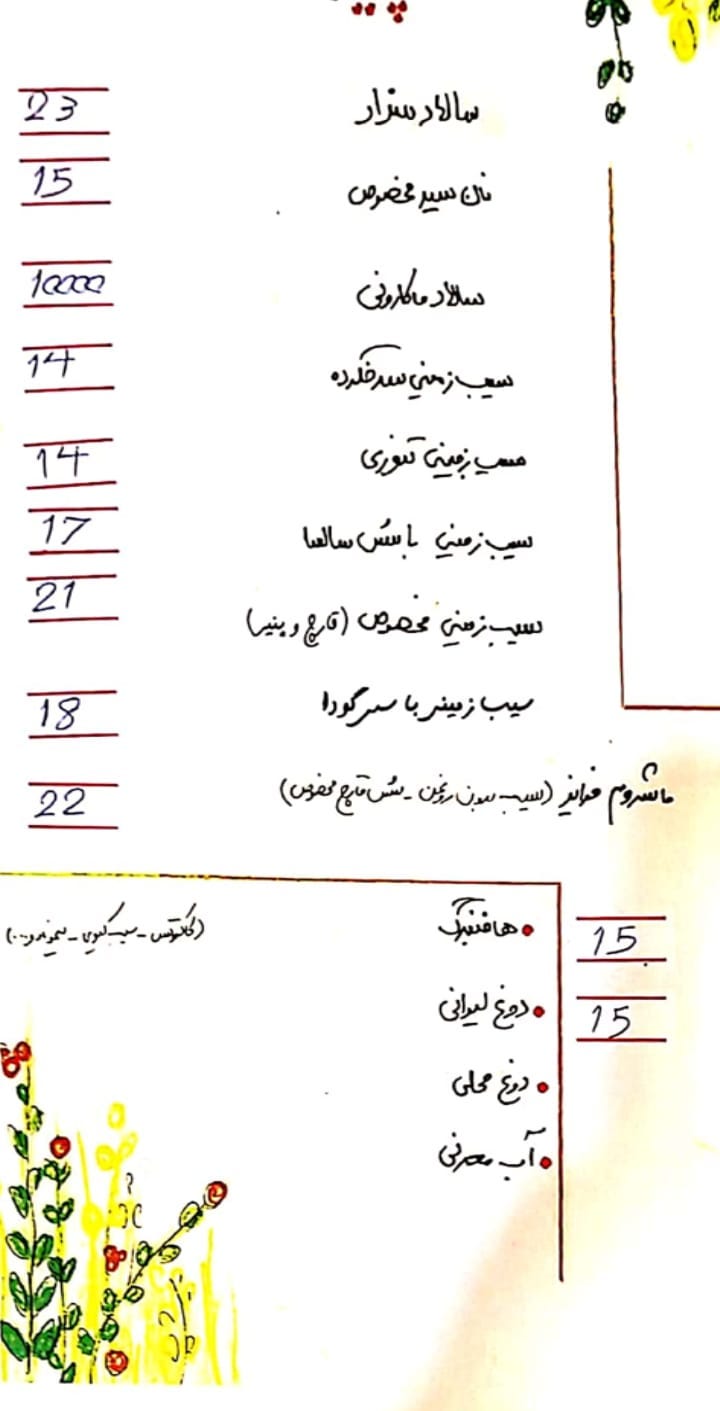 سالاد سزار 23
نان سیر مخصوص 15
سالاد ماکارونی 10000
سیب زمینی سرخکرده 14
سیب زمینی تنوری 14
سیب زمینی با سس سالسا 17
سیب زمینی مخصوص (قارچ و پنیر) 21
سیب زمینی با سس گودا 18
ماشروم فرایز (سیب بدون روغن - سس قارچ مخصوص) 22
15 • ها فنبرگ (کاکتوس - سیب کیوی - لیموندو...)
15 • دوغ لیوانی
• دوغ محلی
• آب معدنی